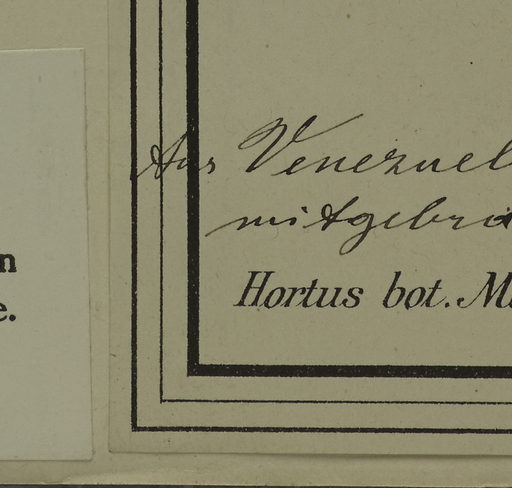 Aus Venezuel
mitgebra
Hortus bot. M
n
e.